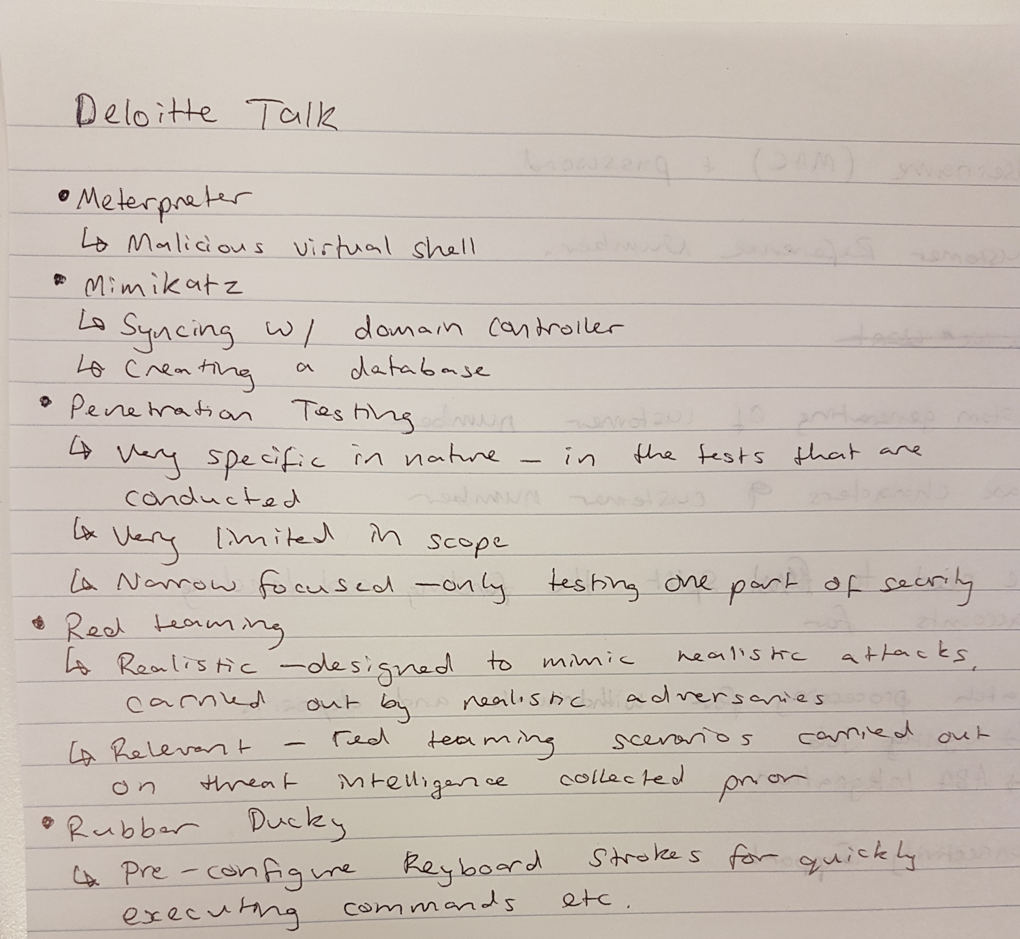 Deloitte Talk
• Meterpreter
↳ Malicious virtual shell
• Mimikatz
↳ Syncing w/ domain controller
↳ Creating a database
• Penetration Testing
↳ Very specific in nature – in the tests that are
conducted
↳ Very limited in scope
↳ Narrow focused – only testing one part of secrity
• Red teaming
↳ Realistic – designed to mimic realistic attacks,
carried out by realistic adversaries
↳ Relevant – red teaming scenarios carried out
on threat intelligence collected prior
• Rubber Ducky
↳ Pre-configure Keyboard Strokes for quickly
executing commands etc.